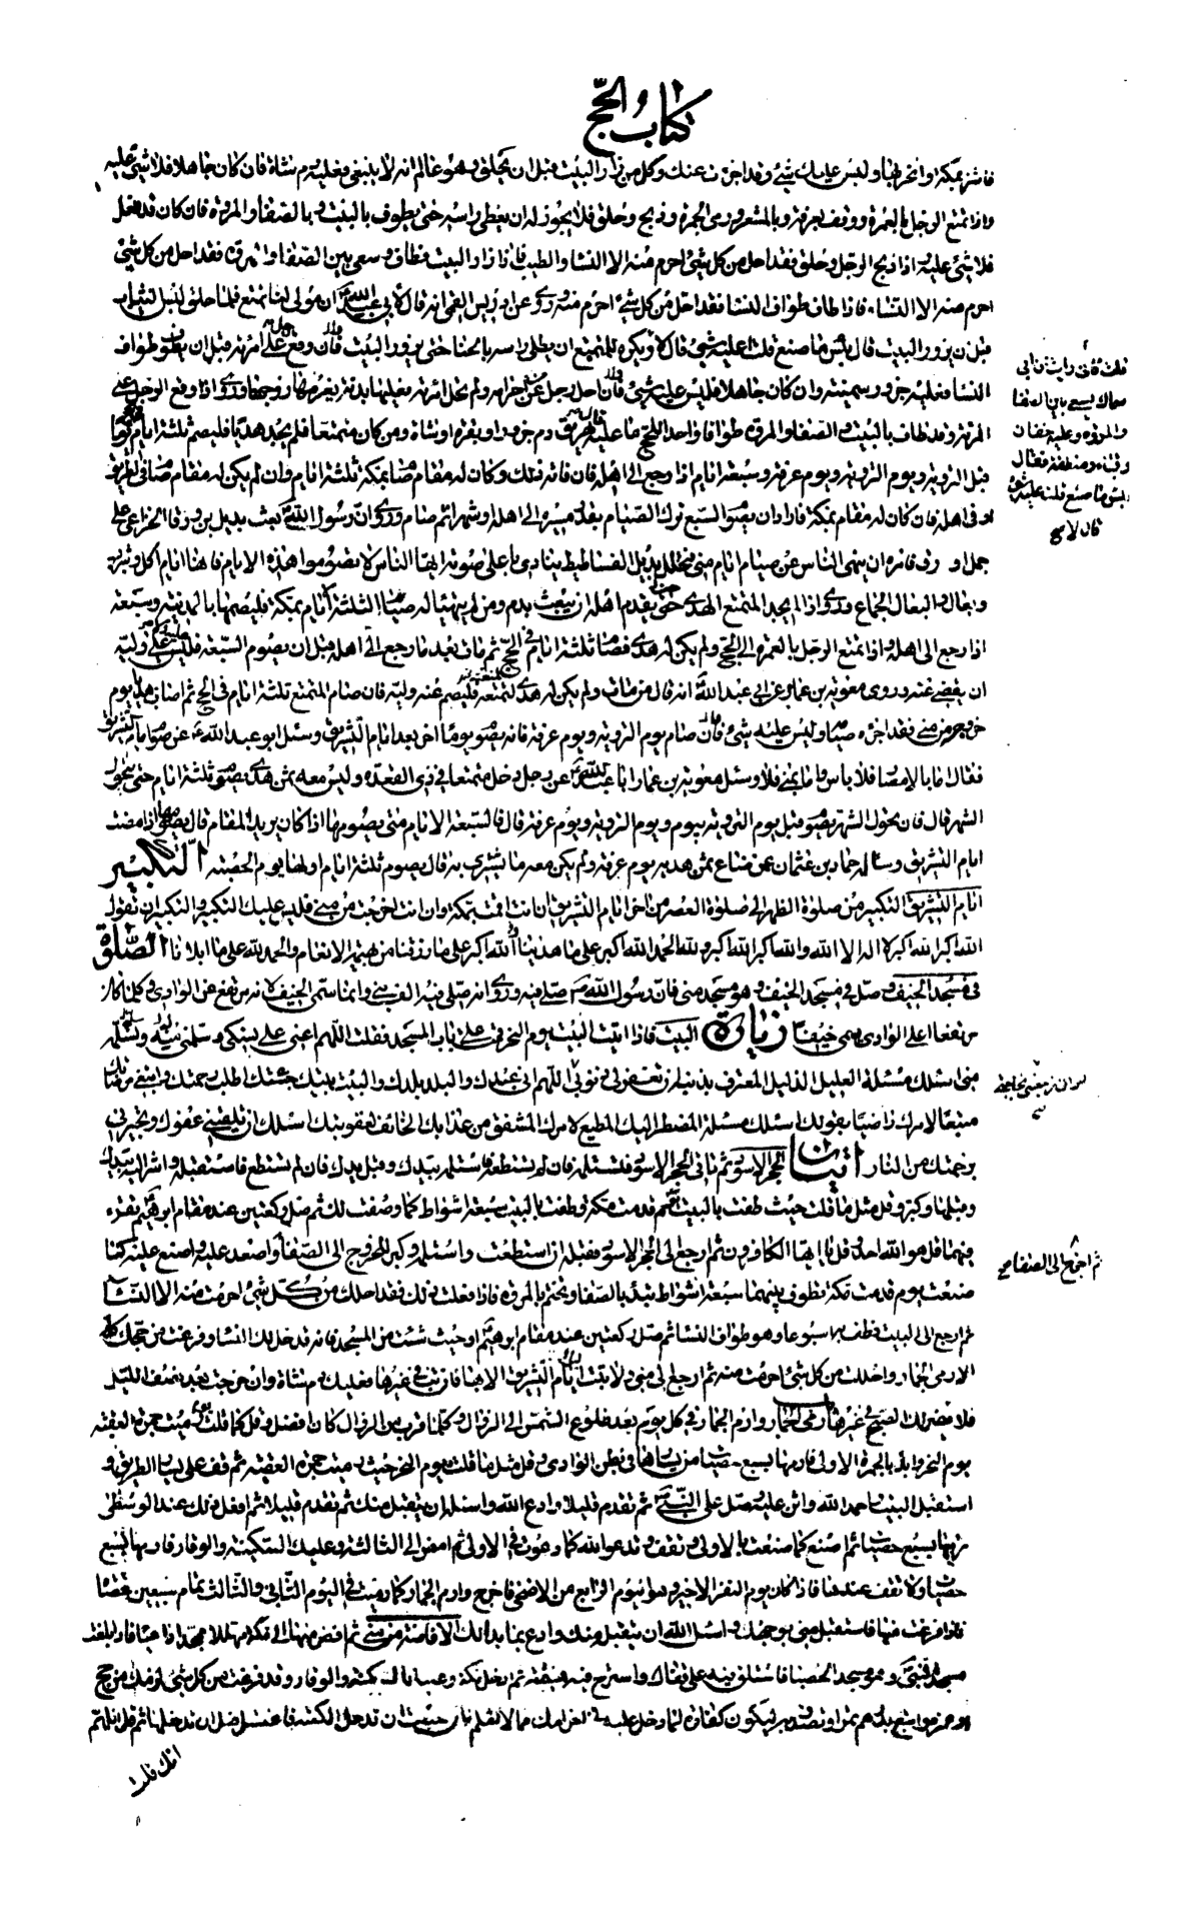 كتاب الحج
فاشتر بمكة وانحرها وليس عليك شيء وقد اجزت عنك وكل من زار البيت قبل ان يحلق وهو عالم انه لا ينبغي فعليه دم شاة فان كان جاهلا فلا شيء عليه
واذا تمتع الرجل بالعمرة ووقف بعرفة وبالمشعر ورمى الجمرة وذبح وحلق فلا يجوز له ان يغطي راسه حتى يطوف بالبيت وبالصفا والمروة فان كان قد فعل
فلا شيء عليه اذا ذبح الرجل وحلق فقد احل من كل شيء احرم منه الا النساء والطيب فاذا زار البيت وطاف وسعى بين الصفا والمروة فقد احل من كل شيء
احرم منه الا النساء فاذا طاف طواف النساء فقد احل من كل شيء احرم منه وروى عن ادريس القمي انه قال لابي عبد الله ان مولى لنا تمتع فلما حلق لبس الثياب
قبل ان يزور البيت قال بئس ما صنع قلت اعليه شيء قال لا ويكره للمتمتع ان يطلي راسه بالحناء حتى يزور البيت فان وقع على امرته قبل ان يطوف طواف
النساء فعليه جزور سمينة وان كان جاهلا فليس عليه شيء فان احل رجل من احرامه ولم تحل امرته فعليها بدنة يغرمها زوجها وروى اذا وقع الرجل على
امرته وقد طاف بالبيت والصفا والمروة طوافا واحدا للحج ما عليه قال يهريق دم جزور او بقرة او شاة ومن كان متمتعا فلم يجد هديا فليصم ثلثة ايام يوما
قبل التروية ويوم التروية ويوم عرفة وسبعة ايام اذا رجع الى اهله فان فاته ذلك وكان له مقام صام بمكة ثلثة ايام وان لم يكن له مقام صام في الطريق
او في اهله فان كان له مقام بمكة فاراد ان يصوم السبع ترك الصيام بقدر مسيره الى اهله او شهرا ثم صام وروى ان رسول الله بعث بديل بن ورقا الخزاعي على
جمل اورق فامره ان ينهى الناس عن صيام ايام منى فتخلل بديل الفساطيط ينادي باعلى صوته ايها الناس لا تصوموا هذه الايام فانها ايام اكل وشرب
وبعال والبعال الجماع وروى اذا لم يجد المتمتع الهدي حتى يقدم اهله انه يبعث بدم ومن لم يتهيا له صيام الثلثة ايام بمكة فليصمها بالمدينة وسبعة
اذا رجع الى اهله واذا تمتع الرجل بالعمرة الى الحج ولم يكن له هدي فصام ثلثة ايام في الحج ثم مات بعد ما رجع الى اهله قبل ان يصوم السبعة فليس على وليه
ان يقضي عنه وروى معوية بن عمار عن ابي عبد الله انه قال من مات ولم يكن له هدي لمتعته فليصم عنه وليه فان صام المتمتع ثلثة ايام في الحج ثم اصاب هديا يوم
خرج من منى فقد اجزءه صيامه وليس عليه شيء فان صام يوم التروية ويوم عرفة فانه يصوم يوما اخر بعد ايام التشريق وسئل ابو عبد الله ع عن صوم ايام التشريق
فقال اما بالامصار فلا باس واما بمنى فلا وسئل معوية بن عمار ابا عبد الله عن رجل دخل متمتعا في ذي القعدة وليس معه ثمن هدي قال يصوم ثلثة ايام حتى يتحول
الشهر قال فان تحول الشهر يصوم قبل يوم التروية بيوم ويوم التروية ويوم عرفة قال قال السبعة الايام متى يصومها اذا كان يريد المقام قال يصومها اذا مضت
ايام التشريق وسال حماد بن عثمان عمن ضاع ثمن هديه يوم عرفة ولم يكن معه ما يشتري به قال يصوم ثلثة ايام اولها يوم الحصبة التكبير
ايام التشريق التكبير من صلوة الظهر الى صلوة العصر من اخر ايام التشريق ان انت اقمت بمكة وان انت خرجت من منى فليس عليك التكبير والتكبير ان تقول
الله اكبر الله اكبر لا اله الا الله والله اكبر الله اكبر ولله الحمد الله اكبر على ما هدينا الله اكبر على ما رزقنا من بهيمة الانعام والحمد لله على ما ابلانا الصلوة
في مسجد الخيف وصل في مسجد الخيف وهو مسجد منى فان رسول الله صلى فيه وروى انه صلى فيه الف نبي وانما سمي الخيف لانه مرتفع عن الوادي وكلما كان
مرتفعا اعلى الوادي سمي خيفا زيارة البيت فاذا اتيت البيت يوم النحر قمت على باب المسجد فقلت اللهم اعني على نسكي وسلمني له وتسلمه
مني اسئلك مسئلة العليل الذليل المعترف بذنبه ان تغفر لي ذنوبي اللهم اني عبدك والبلد بلدك والبيت بيتك جئتك اطلب رحمتك وابتغي مرضاتك
متبعا لامرك راضيا بقدرك اسئلك مسئلة المضطر اليك المطيع لامرك المشفق من عذابك الخائف لعقوبتك اسئلك ان تلقيني عفوك وتجيرني
برحمتك من النار اتيان الحجر الاسود ثم تاتي الحجر الاسود فتستلمه فان لم تستطع فاستلمه بيدك وقبل يدك فان لم تستطع فاستقبله واشر اليه بيدك
وقبلها وكبر وقل مثل ما قلت حيث طفت بالبيت يوم قدمت مكة وطفت بالبيت سبعة اشواط كما وصفت لك ثم صل ركعتين عند مقام ابرهيم تقرء
فيهما قل هو الله احد وقل يا ايها الكافرون ثم ارجع الى الحجر الاسود فقبله ان استطعت واستلمه وكبر الخروج الى الصفا واصعد عليه واصنع عليه كما
صنعت يوم قدمت مكة تطوف بينهما سبعة اشواط تبدء بالصفا وتختم بالمروة فاذا فعلت ذلك فقد احللت من كل شيء احرمت منه الا النساء
ثم ارجع الى البيت فطف به اسبوعا وهو طواف النساء ثم صل ركعتين عند مقام ابرهيم او حيث شئت من المسجد فانه قد حل لك النساء وفرغت من حجك كله
الا رمي الجمار واحللت من كل شيء احرمت منه ثم ارجع الى منى ولا تبت ايام التشريق الا بها فان بت في غيرها فعليك دم شاة وان خرجت بعد نصف الليل
فلا يضرك الصبح في غيرها رمي الجمار وارم الجمار في كل يوم بعد طلوع الشمس الى الزوال وكلما قرب من الزوال كان افضل وقل كما قلت يوم رميت جمرة العقبة
يوم النحر وابدء بالجمرة الاولى فارمها بسبع حصيات من يسارها في بطن الوادي وقل مثل ما قلت يوم النحر حيث رميت جمرة العقبة ثم قف على يسار الطريق و
استقبل البيت واحمد الله واثن عليه وصل على النبي ثم تقدم قليلا وادع الله واسئله ان يتقبل منك ثم تقدم قليلا ثم افعل ذلك عند الوسطى
ترميها بسبع حصيات ثم اصنع كما صنعت بالاولى وتقف وتدعو الله كما دعوت في الاولى ثم امض الى الثالثة وعليك السكينة والوقار فارمها بسبع
حصيات ولا تقف عندها فاذا كان يوم النفر الاخير وهو اليوم الرابع من الاضحى فاخرج وارم الجمار كما رميت في اليوم الثاني والثالث تمام سبعين حصاة
فاذا فرغت منها فاستقبل منى بوجهك واسئل الله ان يتقبل منك وادع بما بدا لك الافاضة من منى ثم افض منها الى مكة مهللا ممجدا داعيا فاذا بلغت
مسجد النبي وهو مسجد الحصباء فاستلق فيه على قفاك واسترح فيه هنيئة ثم ادخل مكة وعليك السكينة والوقار وقد فرغت من كل شيء لزمك من حج
وعمرة وابتع بدرهم تمرا وتصدق به ليكون كفارة لما دخل عليك في احرامك مما لا تعلم فان احببت ان تدخل الكعبة فاغتسل قبل ان تدخلها ثم قل اللهم
انك قلت
قلت فاني رايت ابن ابي
سمال يسعى بين الصفا
والمروة وعليه خفان
وقباء ومنطقة فقال
بئس ما صنع قلت عليه شيء
قال لا صح
ثم اخرج الى الصفا صح